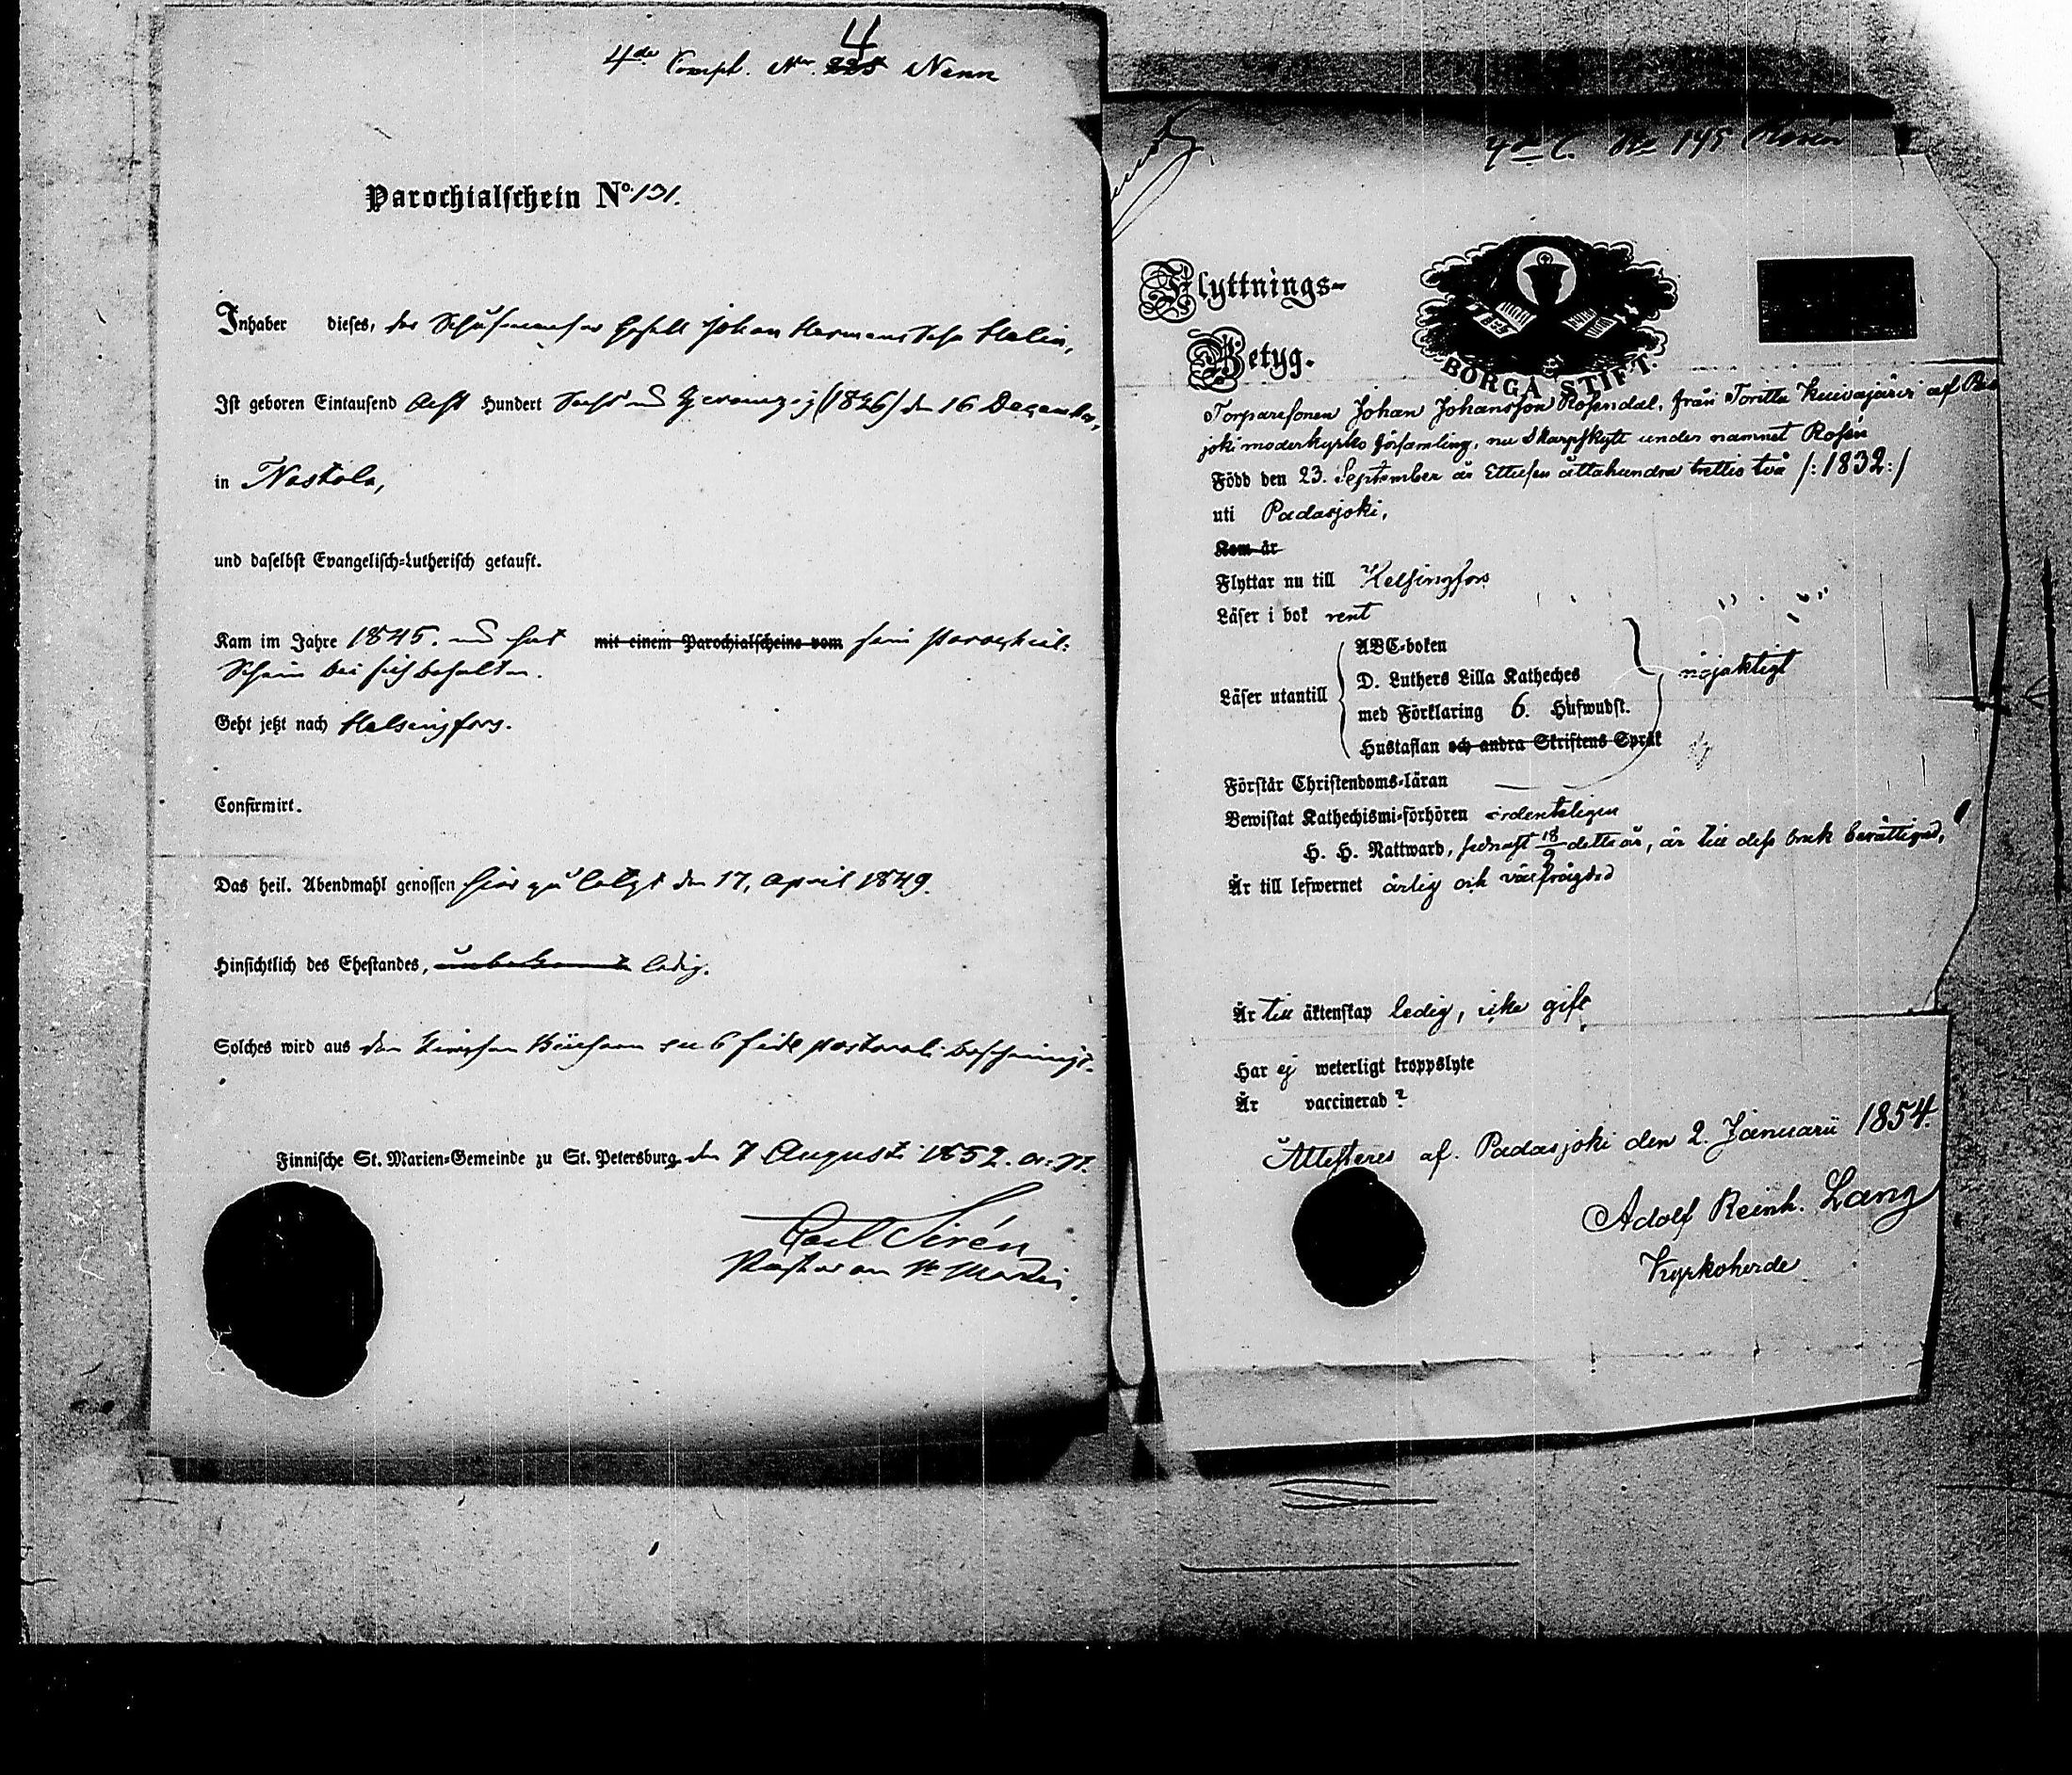 4
4de Compl. Nr 225 Nenn
Parochialschein No. 131.
Inhaber dieses, der Schuhmacher Gesell Johan Hermans Sohn Malin,
Ist geboren Eintausend Acht Hundert Sechs und Zwanzig (1826) den 16 December,
in Nastola,
und daselbst Evangelisch-Lutherisch getauft.
Kam im Jahre 1845. und hat mit einem Parochialscheine vom sein Parochial-
Schein bei sich behalten.
Geht jetzt nach Helsingfors.
Confirmirt.
Das heil. Abendmahl genossen hier zu letzt den 17. April 1849.
Hinsichtlich des Ehestandes, unbekannt ledig.
Solches wird aus den Kirchen Büchern sub fide pastorali bescheinigt.
Finnische St. Marien-Gemeinde zu St. Petersburg den 7 August 1852.
Carl Sirén
Pastor an St Marien
4de C. No 145 Rosén
Flyttnings-
Betyg.
BORGÅ STIFT.
Torparesonen Johan Johansson Rosendal, från Toritta Kuivajärvi af Pada
joki moderkyrko församling, nu Skarpskytt under namnet Rosén
Född den 23. September år Ettusen åttahundra trettio två /:1832:/
uti Padasjoki,
Kom år
Flyttar nu till Helsingfors
Läser i bok rent
Läser utantill
ABC-boken
D. Luthers Lilla Katheches
med Förklaring 6. Hufwudst.
Hustaflan och andra Skriftens Språk
nöjaktigt
Förstår Christendoms-läran
Bewistat Kathechismi-förhören ordenteligen
H. H. Nattward, sednast 18/9 detta år, är till dess bruk berättigad,
Är till lefwernet ärlig och välfräjdad
Är till äktenskap ledig, icke gift
Har ej weterligt kroppslyte
Är vaccinerad?
Attesteres af. Padasjoki den 2. Januarii 1854.
Adolf Reinh. Lang
Kyrkoherde